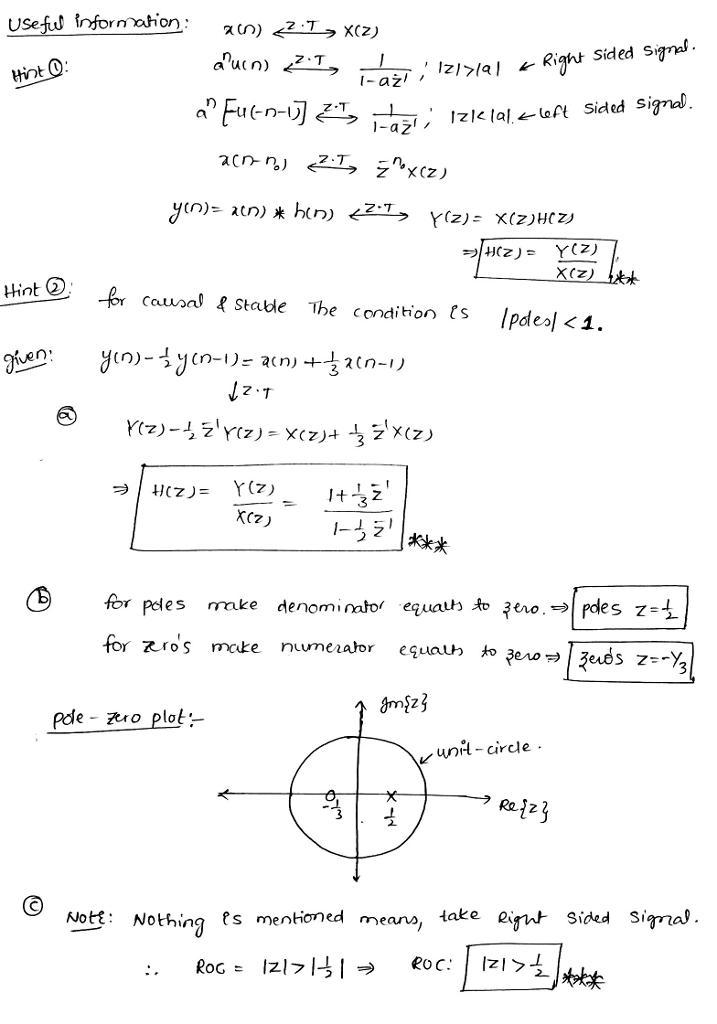 Useful information: x(n) <-Z.T-> X(z)
Hint ①: aⁿu(n) <-Z.T-> 1/(1-az⁻¹) ; |z|>|a| ← Right sided signal.
aⁿ[-u(-n-1)] <-Z.T-> 1/(1-az⁻¹) ; |z|<|a|. ← left sided signal.
x(n-n₀) <-Z.T-> z^-n₀ X(z)
y(n)= x(n) * h(n) <-Z.T-> Y(z)= X(z)H(z)
⇒ H(z) = Y(z)/X(z) **
Hint ②: for causal & stable The condition is |poles| < 1.
given: y(n) - 1/2 y(n-1) = x(n) + 1/3 x(n-1)
↓ Z.T
ⓐ Y(z) - 1/2 z⁻¹Y(z) = X(z) + 1/3 z⁻¹X(z)
⇒ H(z) = Y(z)/X(z) = (1+1/3 z⁻¹)/(1-1/2 z⁻¹) ***
ⓑ for poles make denominator equalts to zero. ⇒ poles z=1/2
for zero's make numerator equalts to zero ⇒ zero's z=-1/3
pole-zero plot:-
Im{z}
unit-circle.
-1/3 1/2 Re{z}
ⓒ Note: Nothing is mentioned means, take Right sided signal.
∴ ROC = |z|>|1/2| ⇒ ROC: |z|>1/2 ***